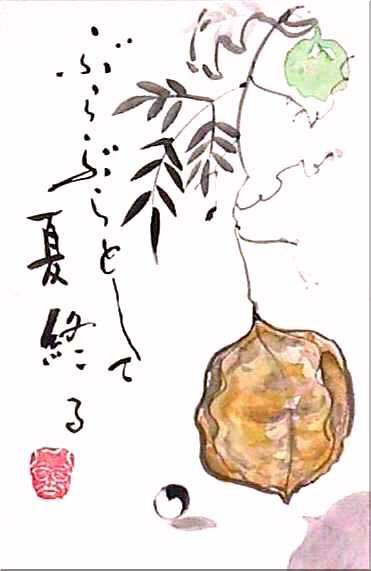 ぶらぶらとして
夏終る